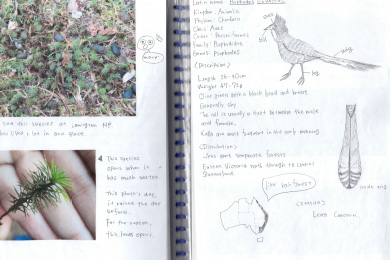 saw this species at Lamington NP.
lot in one place.
This species
opens when it
has much water
This photo's day,
it rained the day
before.
For the reason,
this leaves opens.
Latin name: Psophodes
Kingdom: Animalia
Phylum: Chordata
Class: Aves
Order: Passeriformes
Family: Psophodidae
Genus: Psophodes
<Description>
Length 26-30cm
Weight 47-72g
Olive green with a black head and breast
Generally shy
The call is usually a duet between the male
and female.
Calls are most frequent in the early morning
bill
wing
leg
<Distribution>
wet temperate forests
Eastern Victoria north through to central
Queensland.
like rainforest
<Status>
Least Concern.